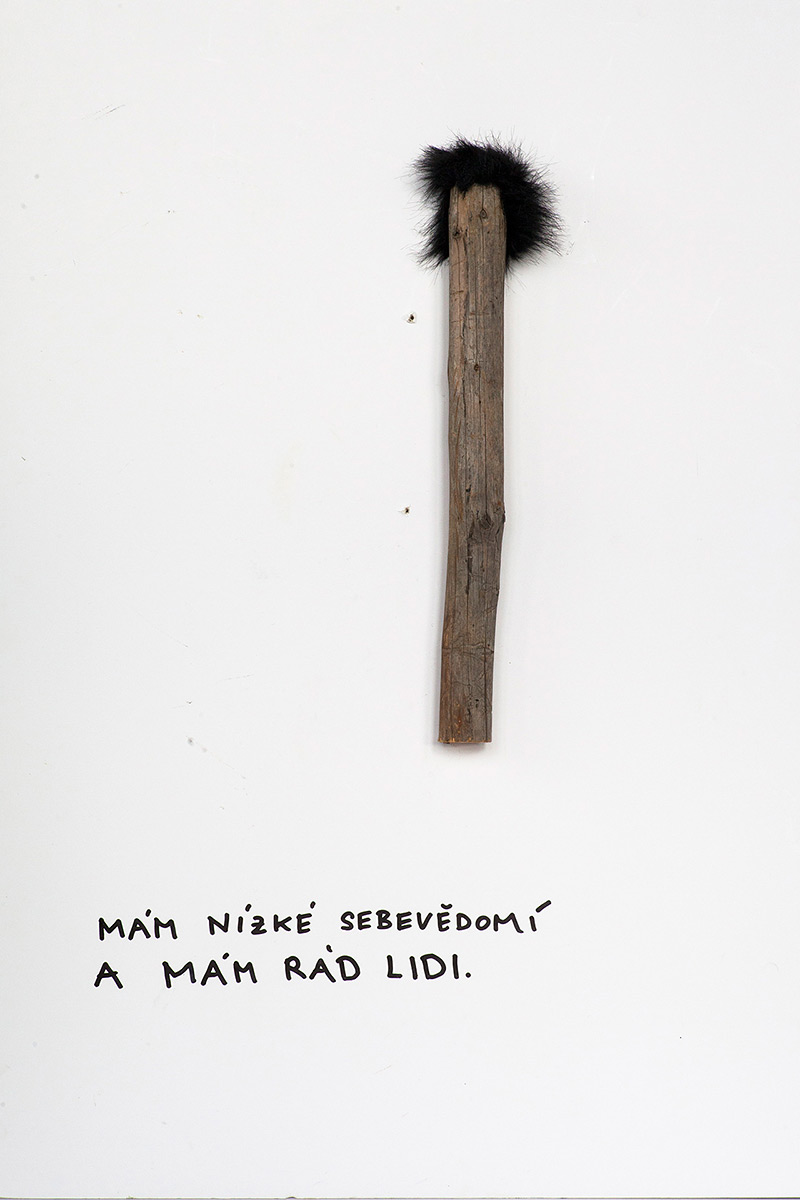 MÁM NÍZKÉ SEBEVĚDOMÍ
A MÁM RÁD LIDI.